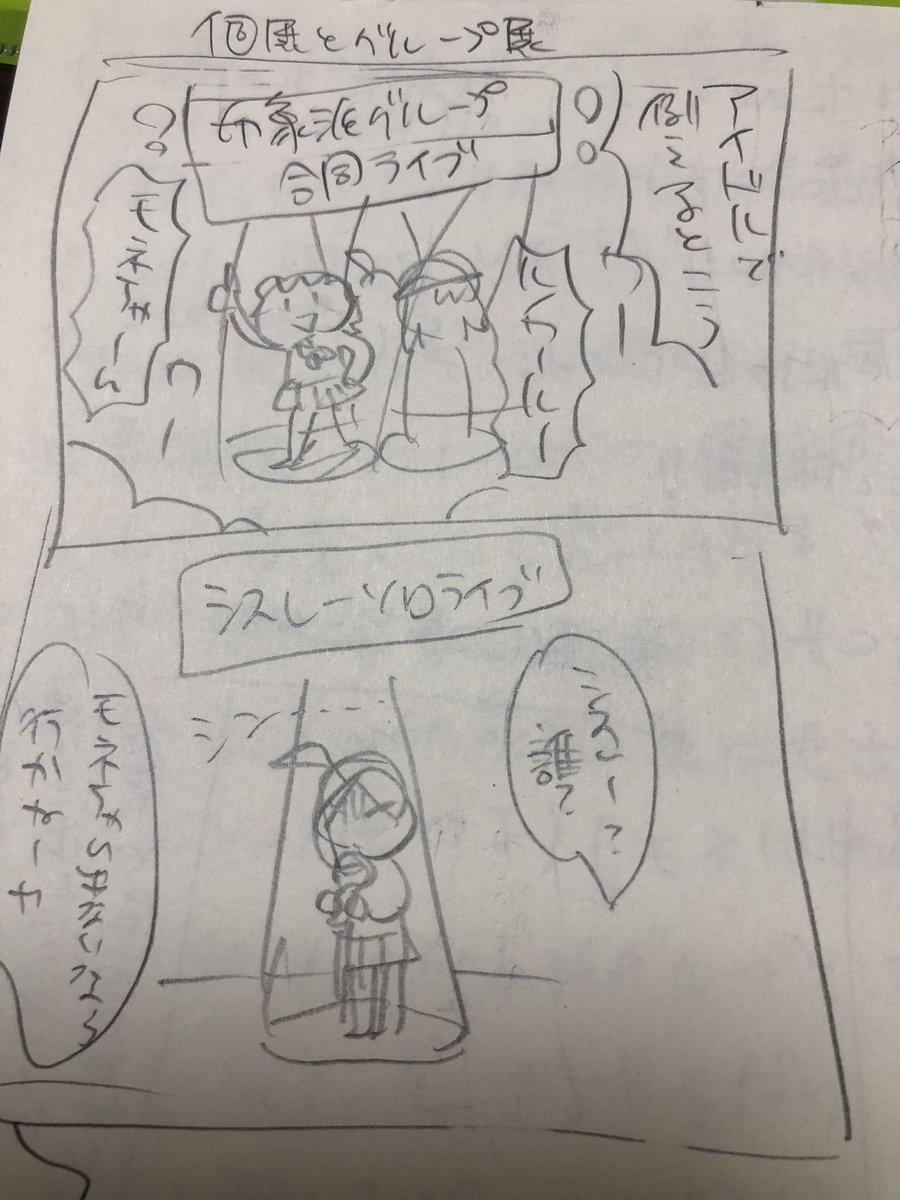 個展とグループ展
アイドルで
例えると…
印象派グループ
合同ライブ
キャー
モネさまーっ
ワー
シスレーソロライブ
シスレー?
誰?
シン……
モネさまが出ないなら
行かなーい